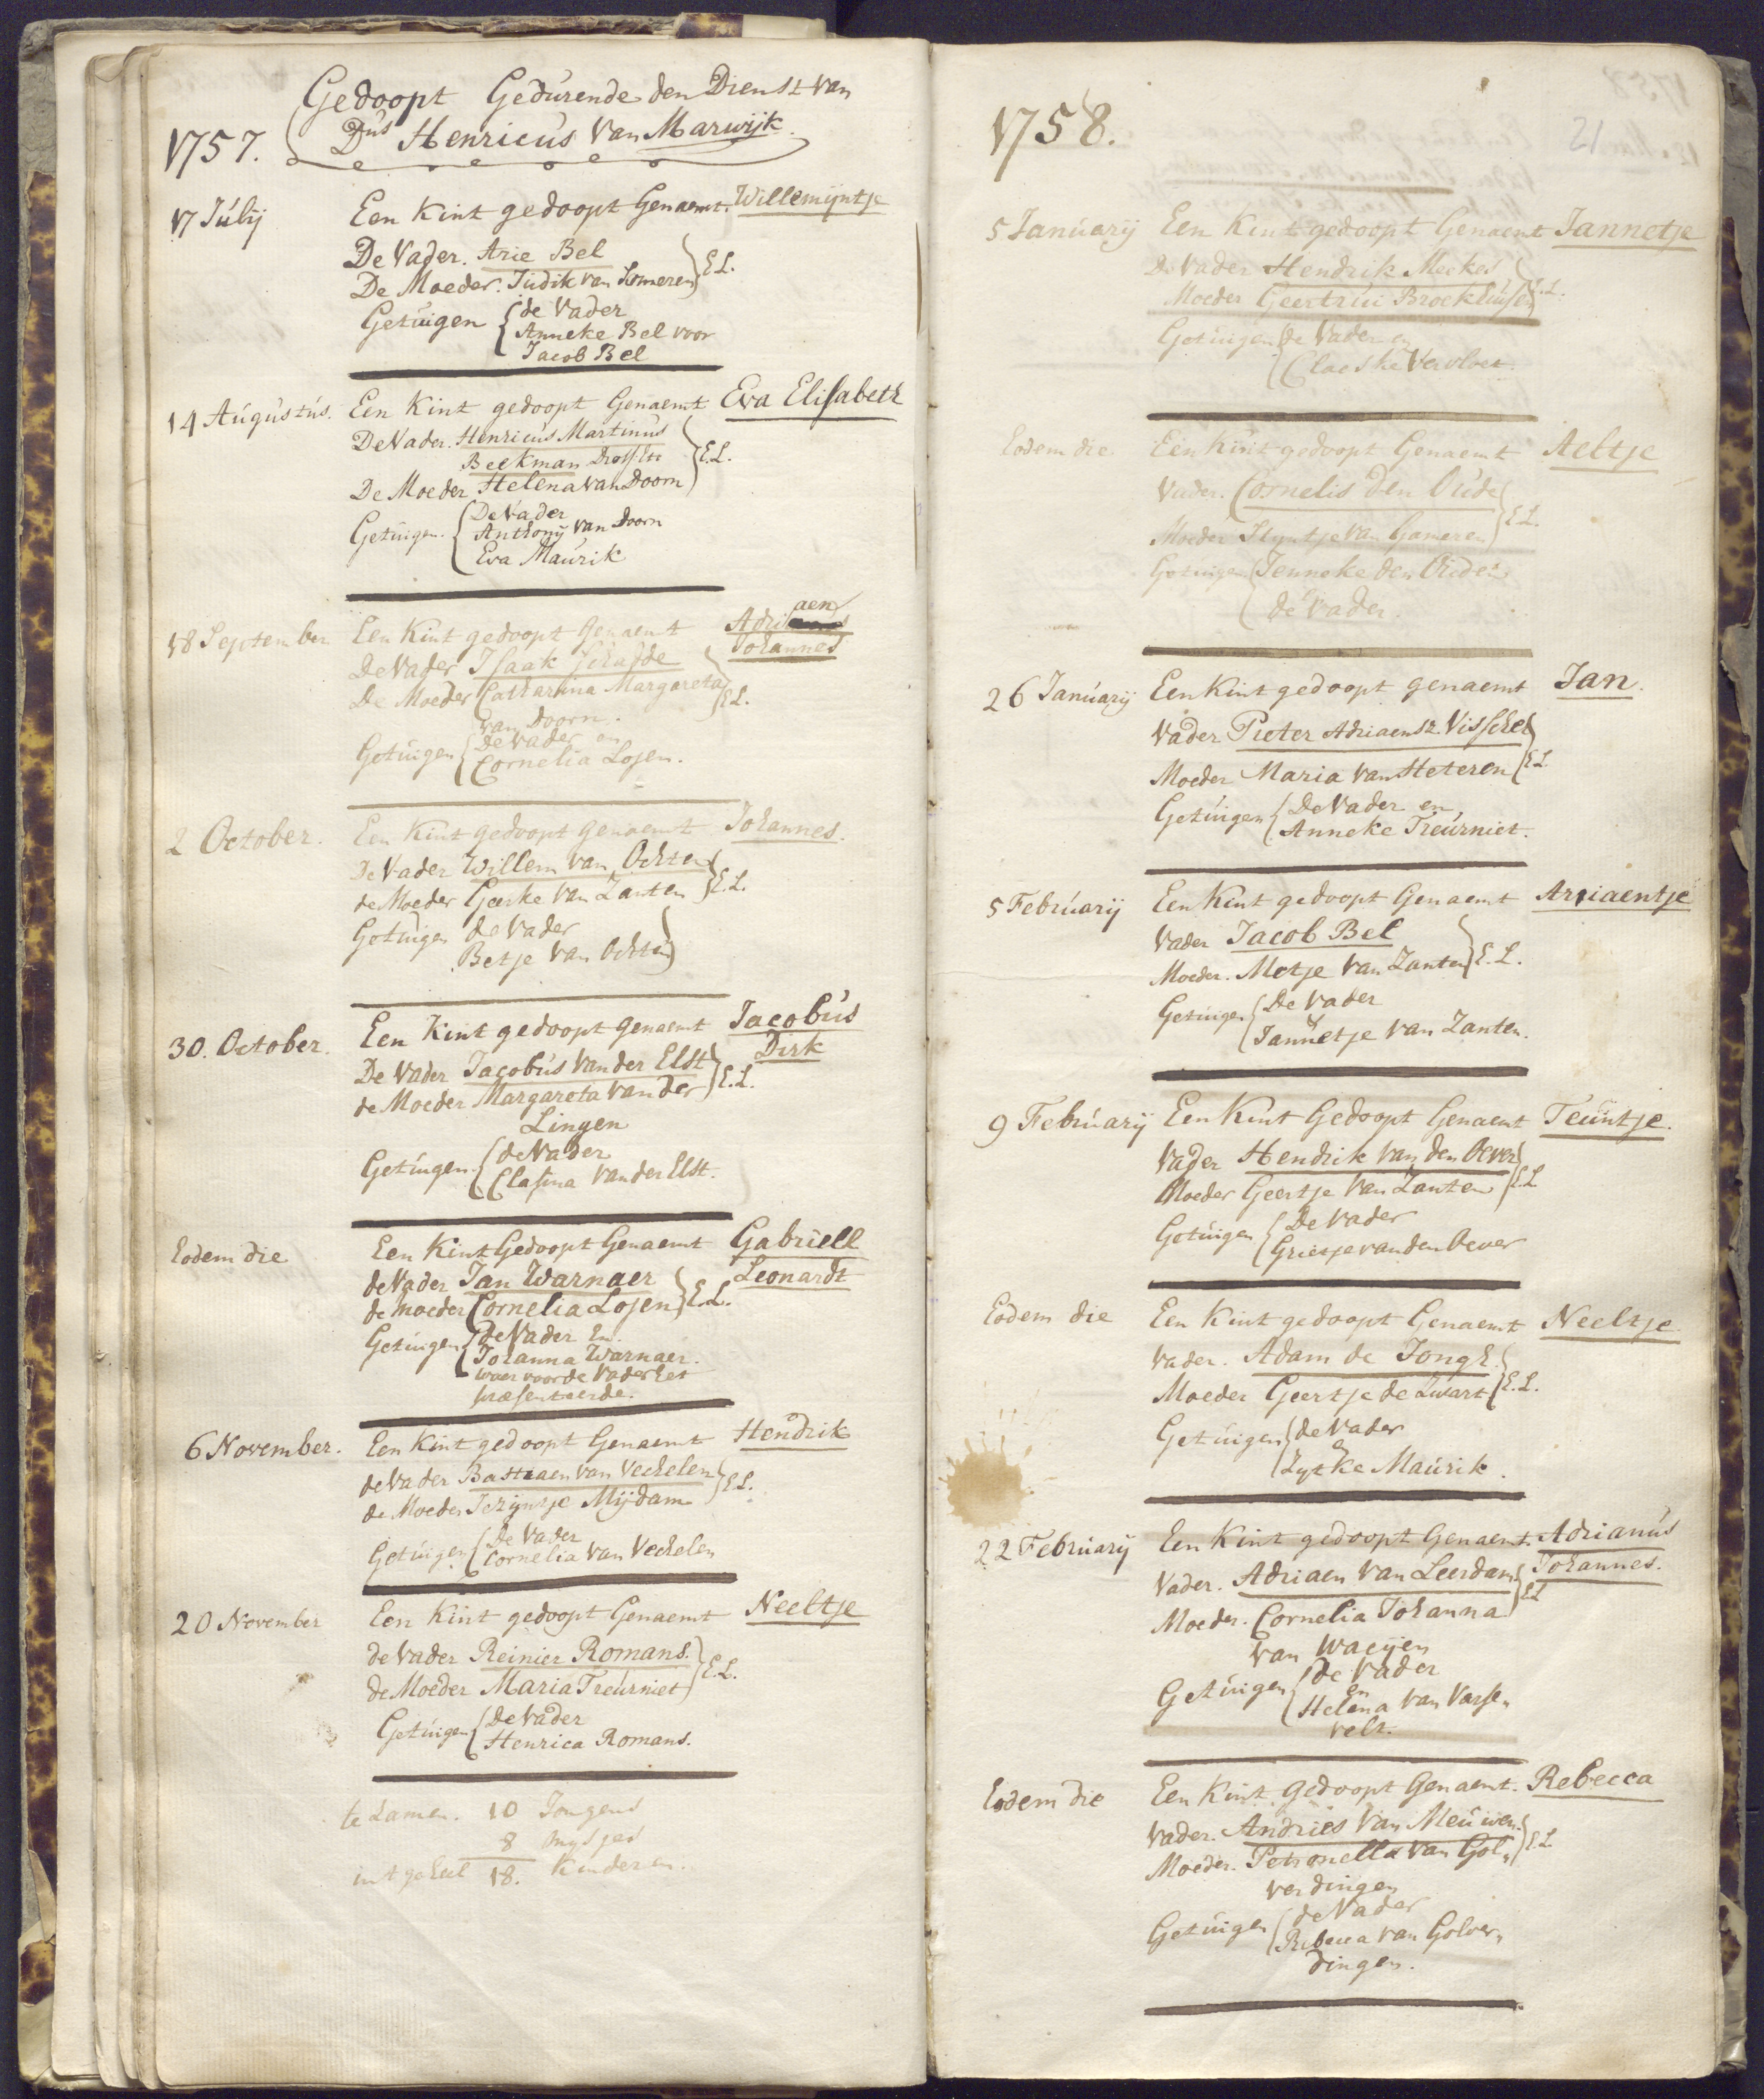 Gedoopt Gedurende den Dienst van
1757. Dus Henricus van Marwijk.
17 Julij Een Kint gedoopt Genaemt. Willemijntje
De Vader. Arie Bel
De Moeder. Judik van Someren } E.L.
Getuigen { de Vader
Anneke Bel voor
Jacob Bel
14 Augustus. Een Kint gedoopt Genaemt Eva Elisabeth
De Vader. Henricus Martinus
Beekman Drossete } E.L.
De Moeder Helena van Doorn
Getuigen. { De Vader
Anthonij van Doorn
Eva Maurik
18 September Een Kint gedoopt genaemt Adriaen
Johannes
De Vader Isaak Schadde
De Moeder Catharina Margareta } E.L.
van Doorn.
Getuigen { De Vader en
Cornelia Losen.
2 October. Een Kint gedoopt genaemt Johannes.
De Vader Willem van Ochten
de Moeder Geerke van Zanten } E.L.
Getuigen de Vader
Betje van Ochten
30. October. Een Kint gedoopt genaemt Jacobus
Dirk
De Vader Jacobus van der Elst
de Moeder Margareta van der } E.L.
Lingen
Getuigen. { de Vader
Clasina van der Elst.
Eodem die Een Kint Gedoopt Genaemt Gabriell
Leonardt
de Vader Jan Warnaer
de moeder Cornelia Losen } E.L.
Getuigen { de Vader En.
Johanna Warnaer.
waer voor de Vader het
præsenteerde.
6 November. Een Kint gedoopt Genaemt Hendrik
de Vader Bastiaen van Vechelen
de Moeder Jezijntje Mijdam } E.L.
Getuigen { De Vader
Cornelia van Vechelen
20 November Een Kint gedoopt Genaemt Neeltje
de Vader Reinier Romans.
de Moeder Maria Treurniet } E.L.
Getuigen { De Vader
Henrica Romans.
te Zamen. 10 Jongens
8 Mysjes
in t geheel 18. Kinderen.
1758.
21
5 Januarij Een Kint gedoopt Genaemt Jannetje
De Vader Hendrik Meekes
Moeder Geertrui Broekhuisen } E.L.
Getuigen { De Vader en
Claeske Vervloet.
Eodem die Een Kint gedoopt Genaemt Aeltje
Vader. Cornelis Den Oude
Moeder Stijntje van Gameren } E.L.
Getuigen { Jenneke den Ouden
de Vader.
26 Januarij Een Kint gedoopt genaemt Jan.
Vader Pieter Adriaensz. Visscher
Moeder Maria van Heteren } E.L.
Getuigen { De Vader en,
Anneke Treurniet.
5 Februarij Een Kint gedoopt Genaemt Ariaentje
Vader Jacob Bel
Moeder. Metje van Zanten } E.L.
Getuigen { De Vader
Jannetje van Zanten.
9 Februarij Een Kint Gedoopt Genaemt Teuntje.
Vader Hendrik van den Oever
Moeder Geertje van Zanten } E.L
Getuigen { De Vader
Grietje van den Oever
Eodem die Een Kint gedoopt Genaemt Neeltje
Vader. Adam de Jongh.
Moeder Geertje de Zwart } E.L.
Getuigen { de Vader
en
Zytke Maurik.
22 Februarij Een Kint gedoopt Genaemt. Adrianus
Johannes.
Vader. Adriaen van Leerdam.
Moeder. Cornelia Johanna } E.L
van Waeijen
Getuigen { De Vader
en
Helena van Varse„
velt.
Eodem die Een Kint gedoopt Genaemt. Rebecca
Vader. Andries van Meeuwen.
Moeder. Petronella van Gol„ } E.L.
verdingen
Getuigen { de Vader
Rebecca van Golver„
dingen.